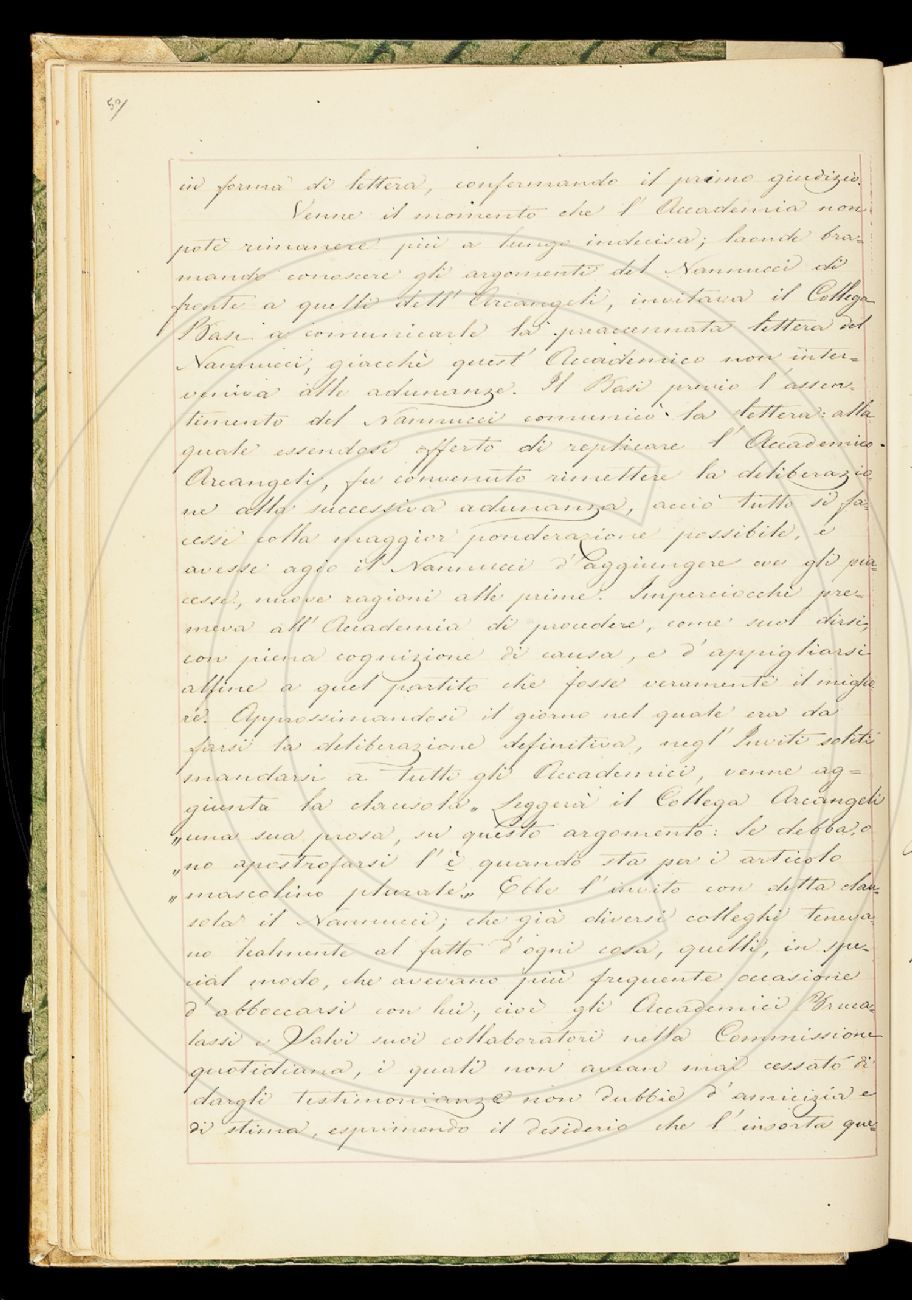 52
in forma di lettera, confermando il primo giudizio.
Venne il momento che l'Accademia non
potè rimanere più a lungo indecisa; laonde bra=
mando conoscere gli argomenti del Nannucci di
fronte a quelli dell'Arcangeli, invitava il Collega
Basi a comunicarle la preaccennata lettera del
Nannucci, giacchè quest'Accademico non inter=
veniva alle adunanze. Il Basi previo l'assen=
timento del Nannucci comunicò la lettera: alla
quale essendosi offerto di replicare l'Accademico
Arcangeli, fu convenuto rimettere la deliberazio
ne alla successiva adunanza, acciò tutto si fa=
cesse colla maggior ponderazione possibile, e
avesse agio il Nannucci d'aggiungere ove gli pia=
cesse, nuove ragioni alle prime. Imperciocchè pre=
meva all'Accademia di procedere, come suol dirsi,
con piena cognizione di causa, e d'appigliarsi
alfine a quel partito che fosse veramente il miglio
re. Approssimandosi il giorno nel quale era da
farsi la deliberazione definitiva, negl'Inviti soliti
mandarsi a tutti gli Accademici, venne ag=
giunta la clausola „ Leggerà il Collega Arcangeli
„ una sua prosa, su questo argomento: Se debba, o
„ no apostrofarsi l'è quando sta per i articolo
„ mascolino plurale „ Ebbe l'invito con detta clau=
sola il Nannucci; che già diversi colleghi teneva=
no lealmente al fatto d'ogni cosa, quelli, in spe=
cial modo, che avevano più frequente occasione
d'abboccarsi con lui, cioè gli Accademici Bruca=
lassi e Salvi suoi collaboratori nella Commissione
quotidiana, i quali non avean mai cessato di
dargli testimonianze non dubbie d'amicizia e
di stima, esprimendo il desiderio che l'insorta que=